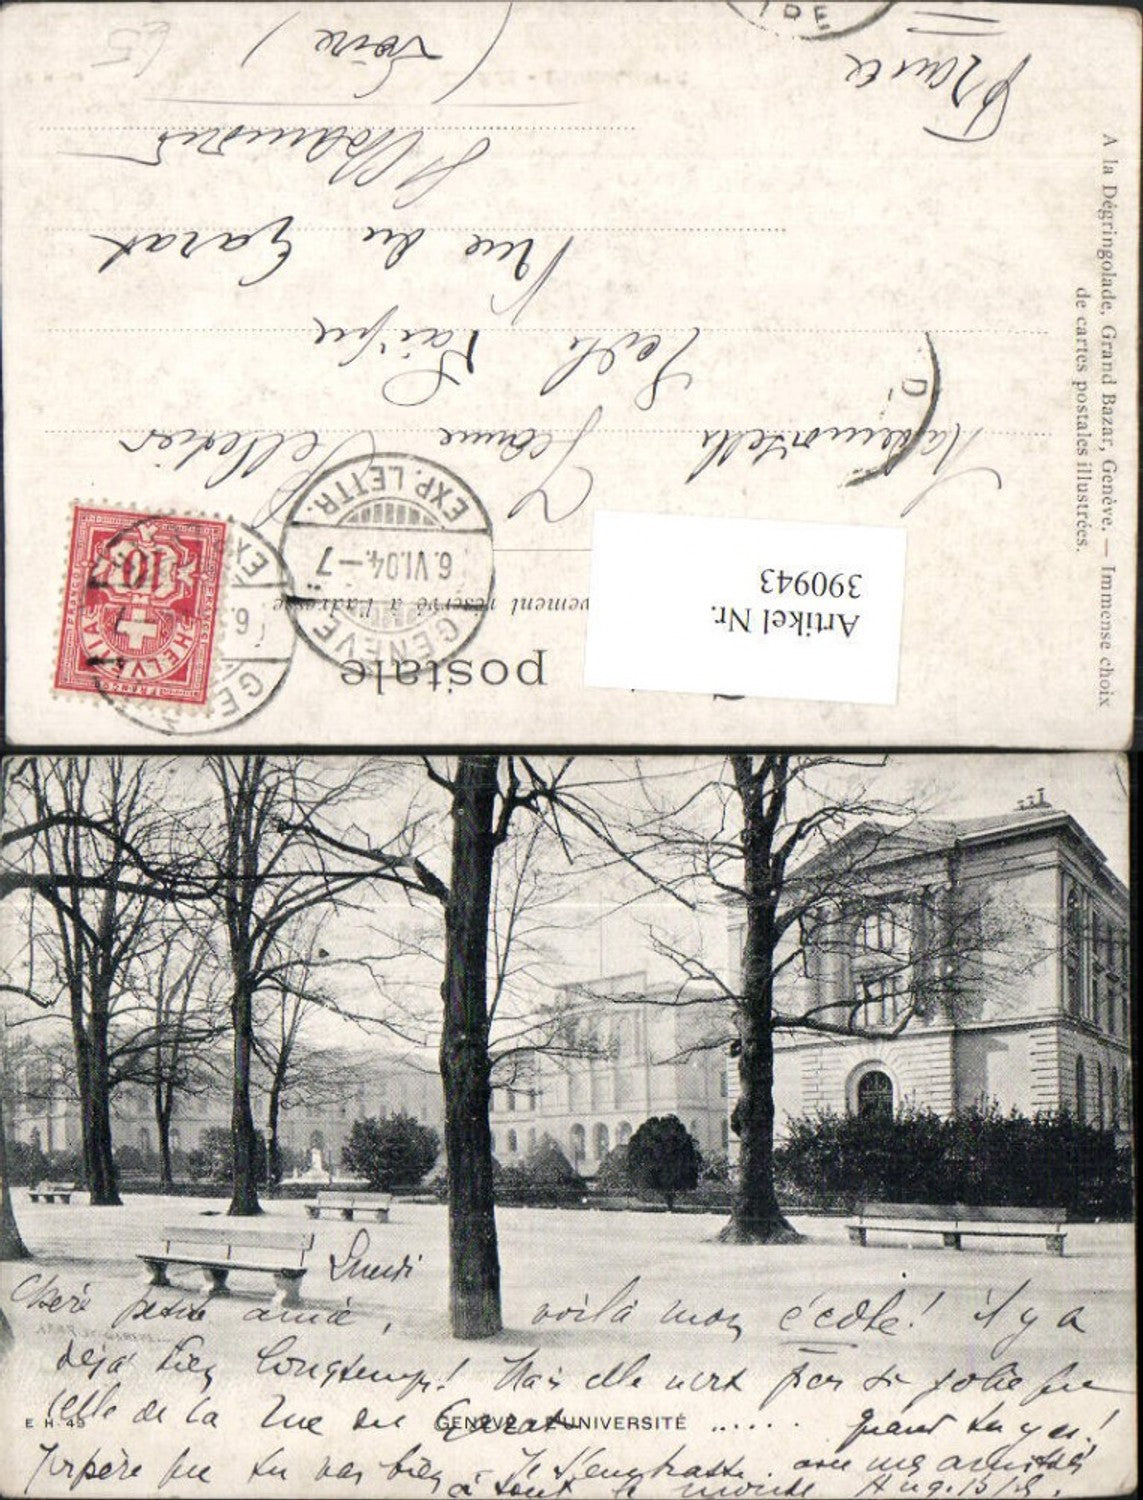 postale
vement réservé à l'adresse
Artikel Nr.
390943
GENÈVE
6.VI.04.-7
EXP. LETTR.
HELVETIA
FRANCO
10
Mademoiselle Jeanne Pelletier
Rue du Garat
St Chamond
(Loire)
France
A la Dégringolade, Grand Bazar, Genève. — Immense choix
de cartes postales illustrées.
Lundi
Chère petite amie, voilà mon école! il y a
déjà bien longtemps! Mais elle n'est pas si jolie que
celle de la Rue du Garat ..... quand tu y es!
E H 43
GENÈVE - L'UNIVERSITÉ
J'espère que tu vas bien - Je t'embrasse. avec mes amitiés
à tout le monde